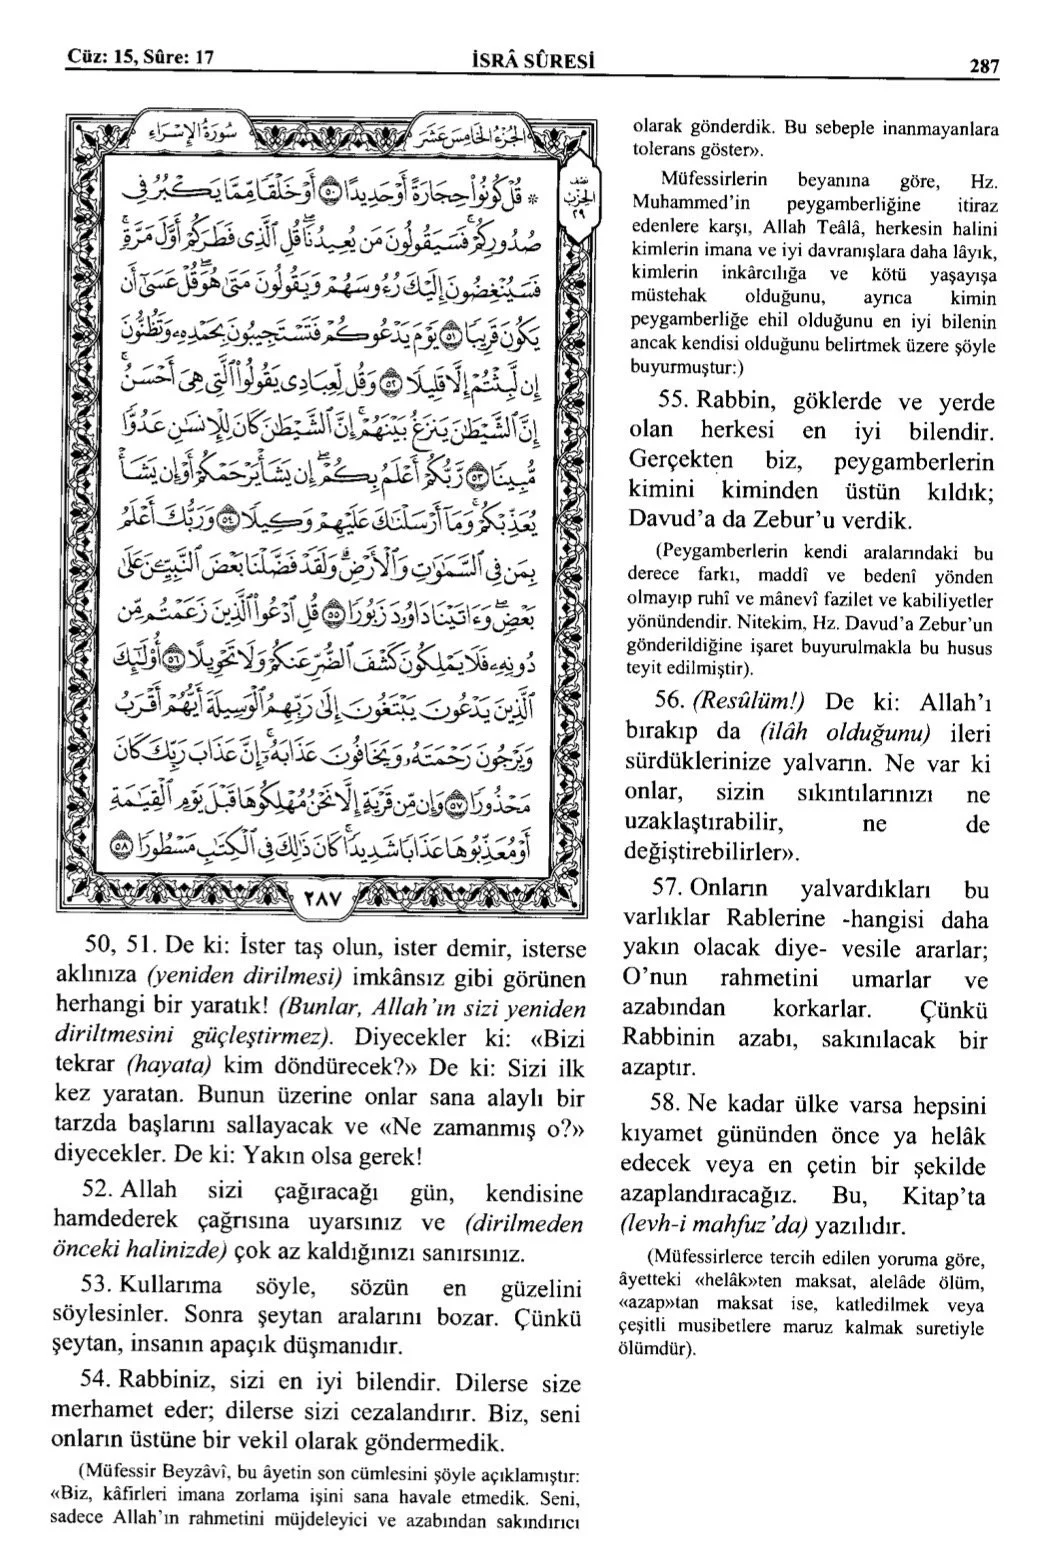 Cüz: 15, Sûre: 17
İSRÂ SÛRESİ
287
سُورَةُ الْإِسْرَاءِ
الجُزْءُ الخَامِسَ عَشَرَ
نصف
الحزب
٢٩
* قُلْ كُونُوا حِجَارَةً أَوْ حَدِيدًا ٥٠ أَوْ خَلْقًا مِمَّا يَكْبُرُ فِي
صُدُورِكُمْ فَسَيَقُولُونَ مَن يُعِيدُنَا قُلِ الَّذِي فَطَرَكُمْ أَوَّلَ مَرَّةٍ
فَسَيُنْغِضُونَ إِلَيْكَ رُءُوسَهُمْ وَيَقُولُونَ مَتَىٰ هُوَ قُلْ عَسَىٰ أَن
يَكُونَ قَرِيبًا ٥١ يَوْمَ يَدْعُوكُمْ فَتَسْتَجِيبُونَ بِحَمْدِهِ وَتَظُنُّونَ
إِن لَّبِثْتُمْ إِلَّا قَلِيلًا ٥٢ وَقُل لِّعِبَادِي يَقُولُوا الَّتِي هِيَ أَحْسَنُ
إِنَّ الشَّيْطَٰنَ يَنزَغُ بَيْنَهُمْ إِنَّ الشَّيْطَٰنَ كَانَ لِلْإِنسَٰنِ عَدُوًّا
مُّبِينًا ٥٣ رَّبُّكُمْ أَعْلَمُ بِكُمْ إِن يَشَأْ يَرْحَمْكُمْ أَوْ إِن يَشَأْ
يُعَذِّبْكُمْ وَمَا أَرْسَلْنَٰكَ عَلَيْهِمْ وَكِيلًا ٥٤ وَرَبُّكَ أَعْلَمُ
بِمَن فِي السَّمَٰوَٰتِ وَالْأَرْضِ وَلَقَدْ فَضَّلْنَا بَعْضَ النَّبِيِّنَ عَلَىٰ
بَعْضٍ وَءَاتَيْنَا دَاوُۥدَ زَبُورًا ٥٥ قُلِ ادْعُوا الَّذِينَ زَعَمْتُم مِّن
دُونِهِ فَلَا يَمْلِكُونَ كَشْفَ الضُّرِّ عَنكُمْ وَلَا تَحْوِيلًا ٥٦ أُولَٰئِكَ
الَّذِينَ يَدْعُونَ يَبْتَغُونَ إِلَىٰ رَبِّهِمُ الْوَسِيلَةَ أَيُّهُمْ أَقْرَبُ
وَيَرْجُونَ رَحْمَتَهُ وَيَخَافُونَ عَذَابَهُ إِنَّ عَذَابَ رَبِّكَ كَانَ
مَحْذُورًا ٥٧ وَإِن مِّن قَرْيَةٍ إِلَّا نَحْنُ مُهْلِكُوهَا قَبْلَ يَوْمِ الْقِيَٰمَةِ
أَوْ مُعَذِّبُوهَا عَذَابًا شَدِيدًا كَانَ ذَٰلِكَ فِي الْكِتَٰبِ مَسْطُورًا ٥٨
٢٨٧
50, 51. De ki: İster taş olun, ister demir, isterse
aklınıza (yeniden dirilmesi) imkânsız gibi görünen
herhangi bir yaratık! (Bunlar, Allah'ın sizi yeniden
diriltmesini güçleştirmez). Diyecekler ki: «Bizi
tekrar (hayata) kim döndürecek?» De ki: Sizi ilk
kez yaratan. Bunun üzerine onlar sana alaylı bir
tarzda başlarını sallayacak ve «Ne zamanmış o?»
diyecekler. De ki: Yakın olsa gerek!
52. Allah sizi çağıracağı gün, kendisine
hamdederek çağrısına uyarsınız ve (dirilmeden
önceki halinizde) çok az kaldığınızı sanırsınız.
53. Kullarıma söyle, sözün en güzelini
söylesinler. Sonra şeytan aralarını bozar. Çünkü
şeytan, insanın apaçık düşmanıdır.
54. Rabbiniz, sizi en iyi bilendir. Dilerse size
merhamet eder; dilerse sizi cezalandırır. Biz, seni
onların üstüne bir vekil olarak göndermedik.
(Müfessir Beyzâvî, bu âyetin son cümlesini şöyle açıklamıştır:
«Biz, kâfirleri imana zorlama işini sana havale etmedik. Seni,
sadece Allah'ın rahmetini müjdeleyici ve azabından sakındırıcı
olarak gönderdik. Bu sebeple inanmayanlara
tolerans göster».
Müfessirlerin beyanına göre, Hz.
Muhammed'in peygamberliğine itiraz
edenlere karşı, Allah Teâlâ, herkesin halini
kimlerin imana ve iyi davranışlara daha lâyık,
kimlerin inkârcılığa ve kötü yaşayışa
müstehak olduğunu, ayrıca kimin
peygamberliğe ehil olduğunu en iyi bilenin
ancak kendisi olduğunu belirtmek üzere şöyle
buyurmuştur:)
55. Rabbin, göklerde ve yerde
olan herkesi en iyi bilendir.
Gerçekten biz, peygamberlerin
kimini kiminden üstün kıldık;
Davud'a da Zebur'u verdik.
(Peygamberlerin kendi aralarındaki bu
derece farkı, maddî ve bedenî yönden
olmayıp ruhî ve mânevî fazilet ve kabiliyetler
yönündendir. Nitekim, Hz. Davud'a Zebur'un
gönderildiğine işaret buyurulmakla bu husus
teyit edilmiştir).
56. (Resûlüm!) De ki: Allah'ı
bırakıp da (ilâh olduğunu) ileri
sürdüklerinize yalvarın. Ne var ki
onlar, sizin sıkıntılarınızı ne
uzaklaştırabilir, ne de
değiştirebilirler».
57. Onların yalvardıkları bu
varlıklar Rablerine -hangisi daha
yakın olacak diye- vesile ararlar;
O'nun rahmetini umarlar ve
azabından korkarlar. Çünkü
Rabbinin azabı, sakınılacak bir
azaptır.
58. Ne kadar ülke varsa hepsini
kıyamet gününden önce ya helâk
edecek veya en çetin bir şekilde
azaplandıracağız. Bu, Kitap'ta
(levh-i mahfuz'da) yazılıdır.
(Müfessirlerce tercih edilen yoruma göre,
âyetteki «helâk»ten maksat, alelâde ölüm,
«azap»tan maksat ise, katledilmek veya
çeşitli musibetlere maruz kalmak suretiyle
ölümdür).